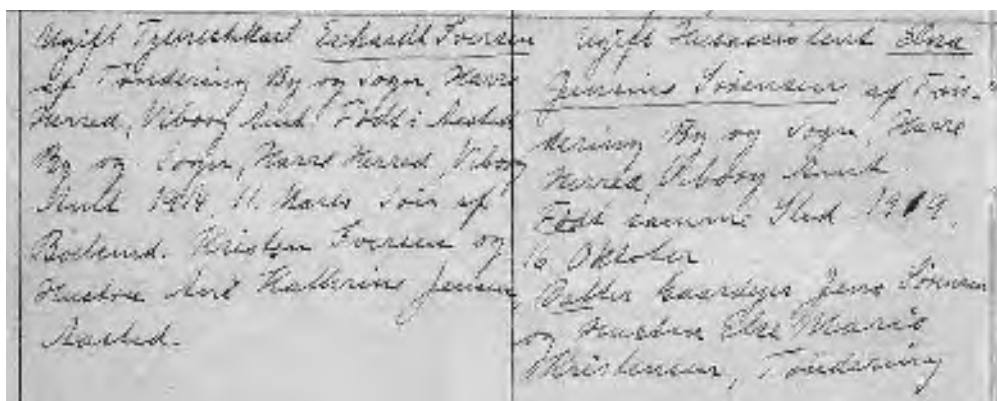 Ugift Tjenestekarl Erhardt Iversen
af Tøndering By og Sogn, Harre
Herred, Viborg Amt. Født i Aasted
By og Sogn, Harre Herred, Viborg
Amt 1914, 11. Marts Søn af
Boelsmd. Kristen Iversen og
Hustru Ane Kathrine Jensen
Aasted.
Ugift Husassistent Elna
Jensine Sørensen af Tøn-
dering By og Sogn, Harre
Herred, Viborg Amt
Født samme Sted 1919,
16 Oktober
Datter Gaardejer Jens Sørensen
og Hustru Else Marie
Kristensen, Tøndering